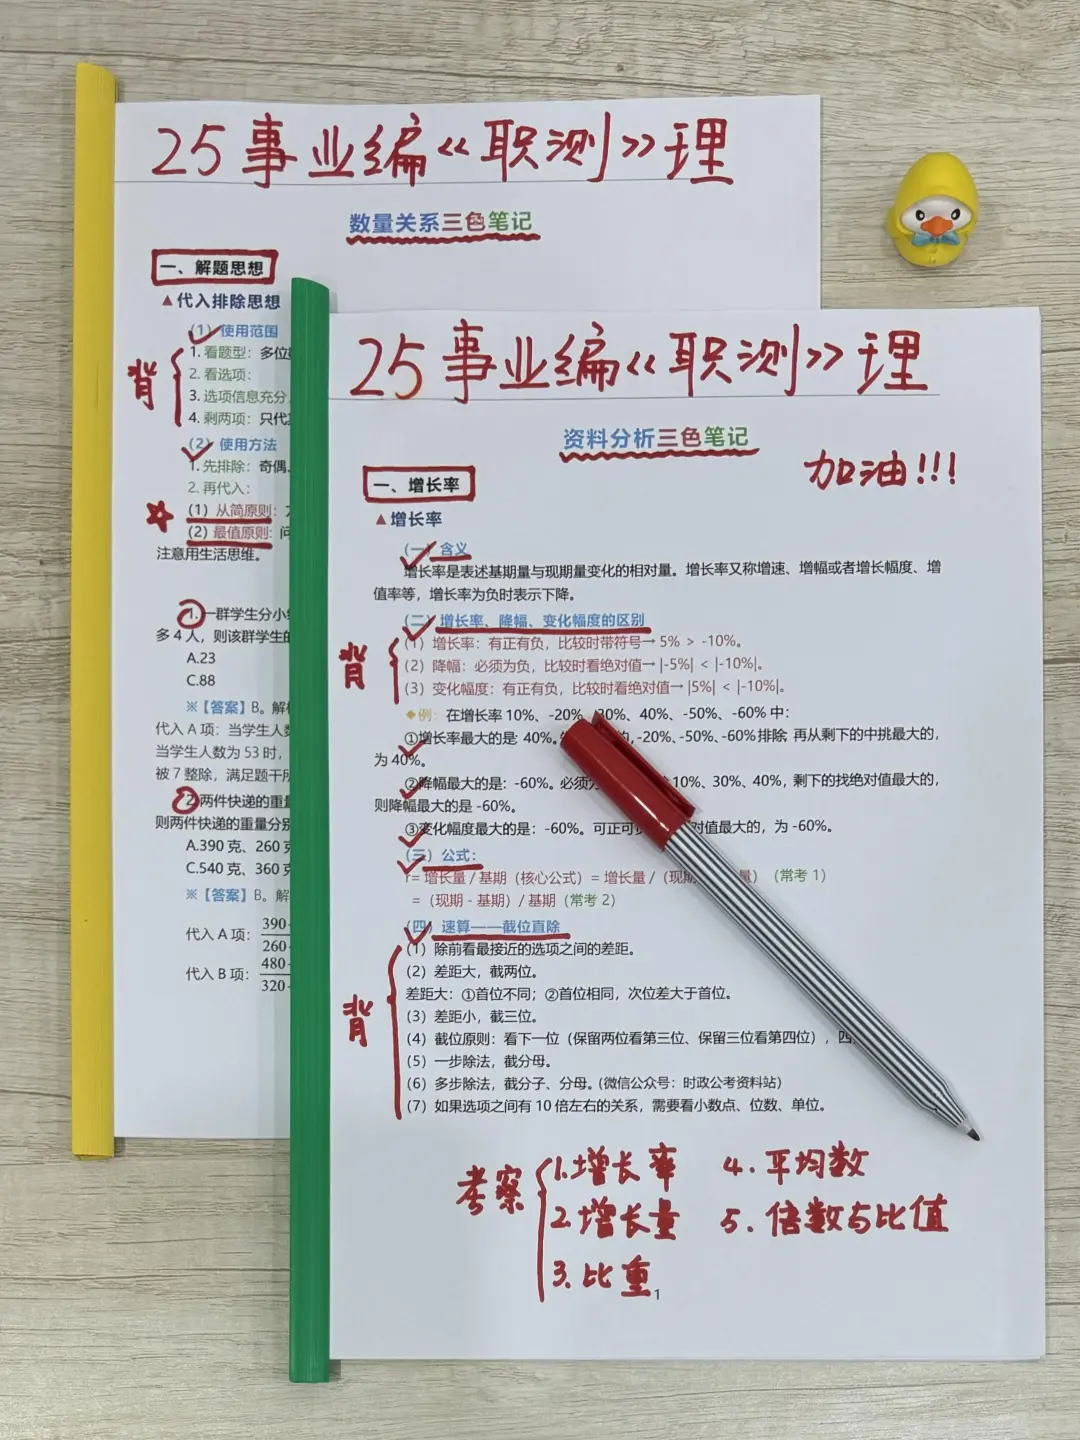 25事业编《职测》理
数量关系三色笔记
一、解题思想
▲代入排除思想
(1) 使用范围
1. 看题型：多位
2. 看选项：
3. 选项信息充分
4. 剩两项：只代
背
(2) 使用方法
1. 先排除：奇偶、
2. 再代入：
(1) 从简原则：
(2) 最值原则：问
注意用生活思维。
1. 一群学生分小
多 4 人，则该群学生的
A.23
C.88
※【答案】B。解析
代入 A 项：当学生人数
当学生人数为 53 时，
被 7 整除，满足题干所
2. 两件快递的重量
则两件快递的重量分别
A.390 克、260 克
C.540 克、360 克
※【答案】B。解
代入 A 项：390-
260-
代入 B 项：480-
320-
25事业编《职测》理
资料分析三色笔记
加油!!!
一、增长率
▲增长率
(一) 含义
增长率是表述基期量与现期量变化的相对量。增长率又称增速、增幅或者增长幅度、增
值率等，增长率为负时表示下降。
(二) 增长率、降幅、变化幅度的区别
(1) 增长率：有正有负，比较时带符号→ 5% > -10%。
(2) 降幅：必须为负，比较时看绝对值→ |-5%| < |-10%|。
(3) 变化幅度：有正有负，比较时看绝对值→ |5%| < |-10%|。
背
◆例：在增长率 10%、-20%、30%、40%、-50%、-60% 中：
①增长率最大的是：40%。的，-20%、-50%、-60% 排除，再从剩下的中挑最大的，
为 40%。
②降幅最大的是：-60%。必须为 10%、30%、40%，剩下的找绝对值最大的，
则降幅最大的是 -60%。
③变化幅度最大的是：-60%。可正可对值最大的，为 -60%。
(三) 公式：
r= 增长量 / 基期（核心公式）= 增长量 /（现期量）（常考 1）
=（现期 - 基期）/ 基期（常考 2）
(四) 速算——截位直除
(1) 除前看最接近的选项之间的差距。
(2) 差距大，截两位。
差距大：①首位不同；②首位相同，次位差大于首位。
(3) 差距小，截三位。
(4) 截位原则：看下一位（保留两位看第三位、保留三位看第四位），四
(5) 一步除法，截分母。
(6) 多步除法，截分子、分母。（微信公众号：时政公考资料站）
(7) 如果选项之间有 10 倍左右的关系，需要看小数点、位数、单位。
背
考察
1.增长率
2.增长量
3.比重
4.平均数
5.倍数与比值
1